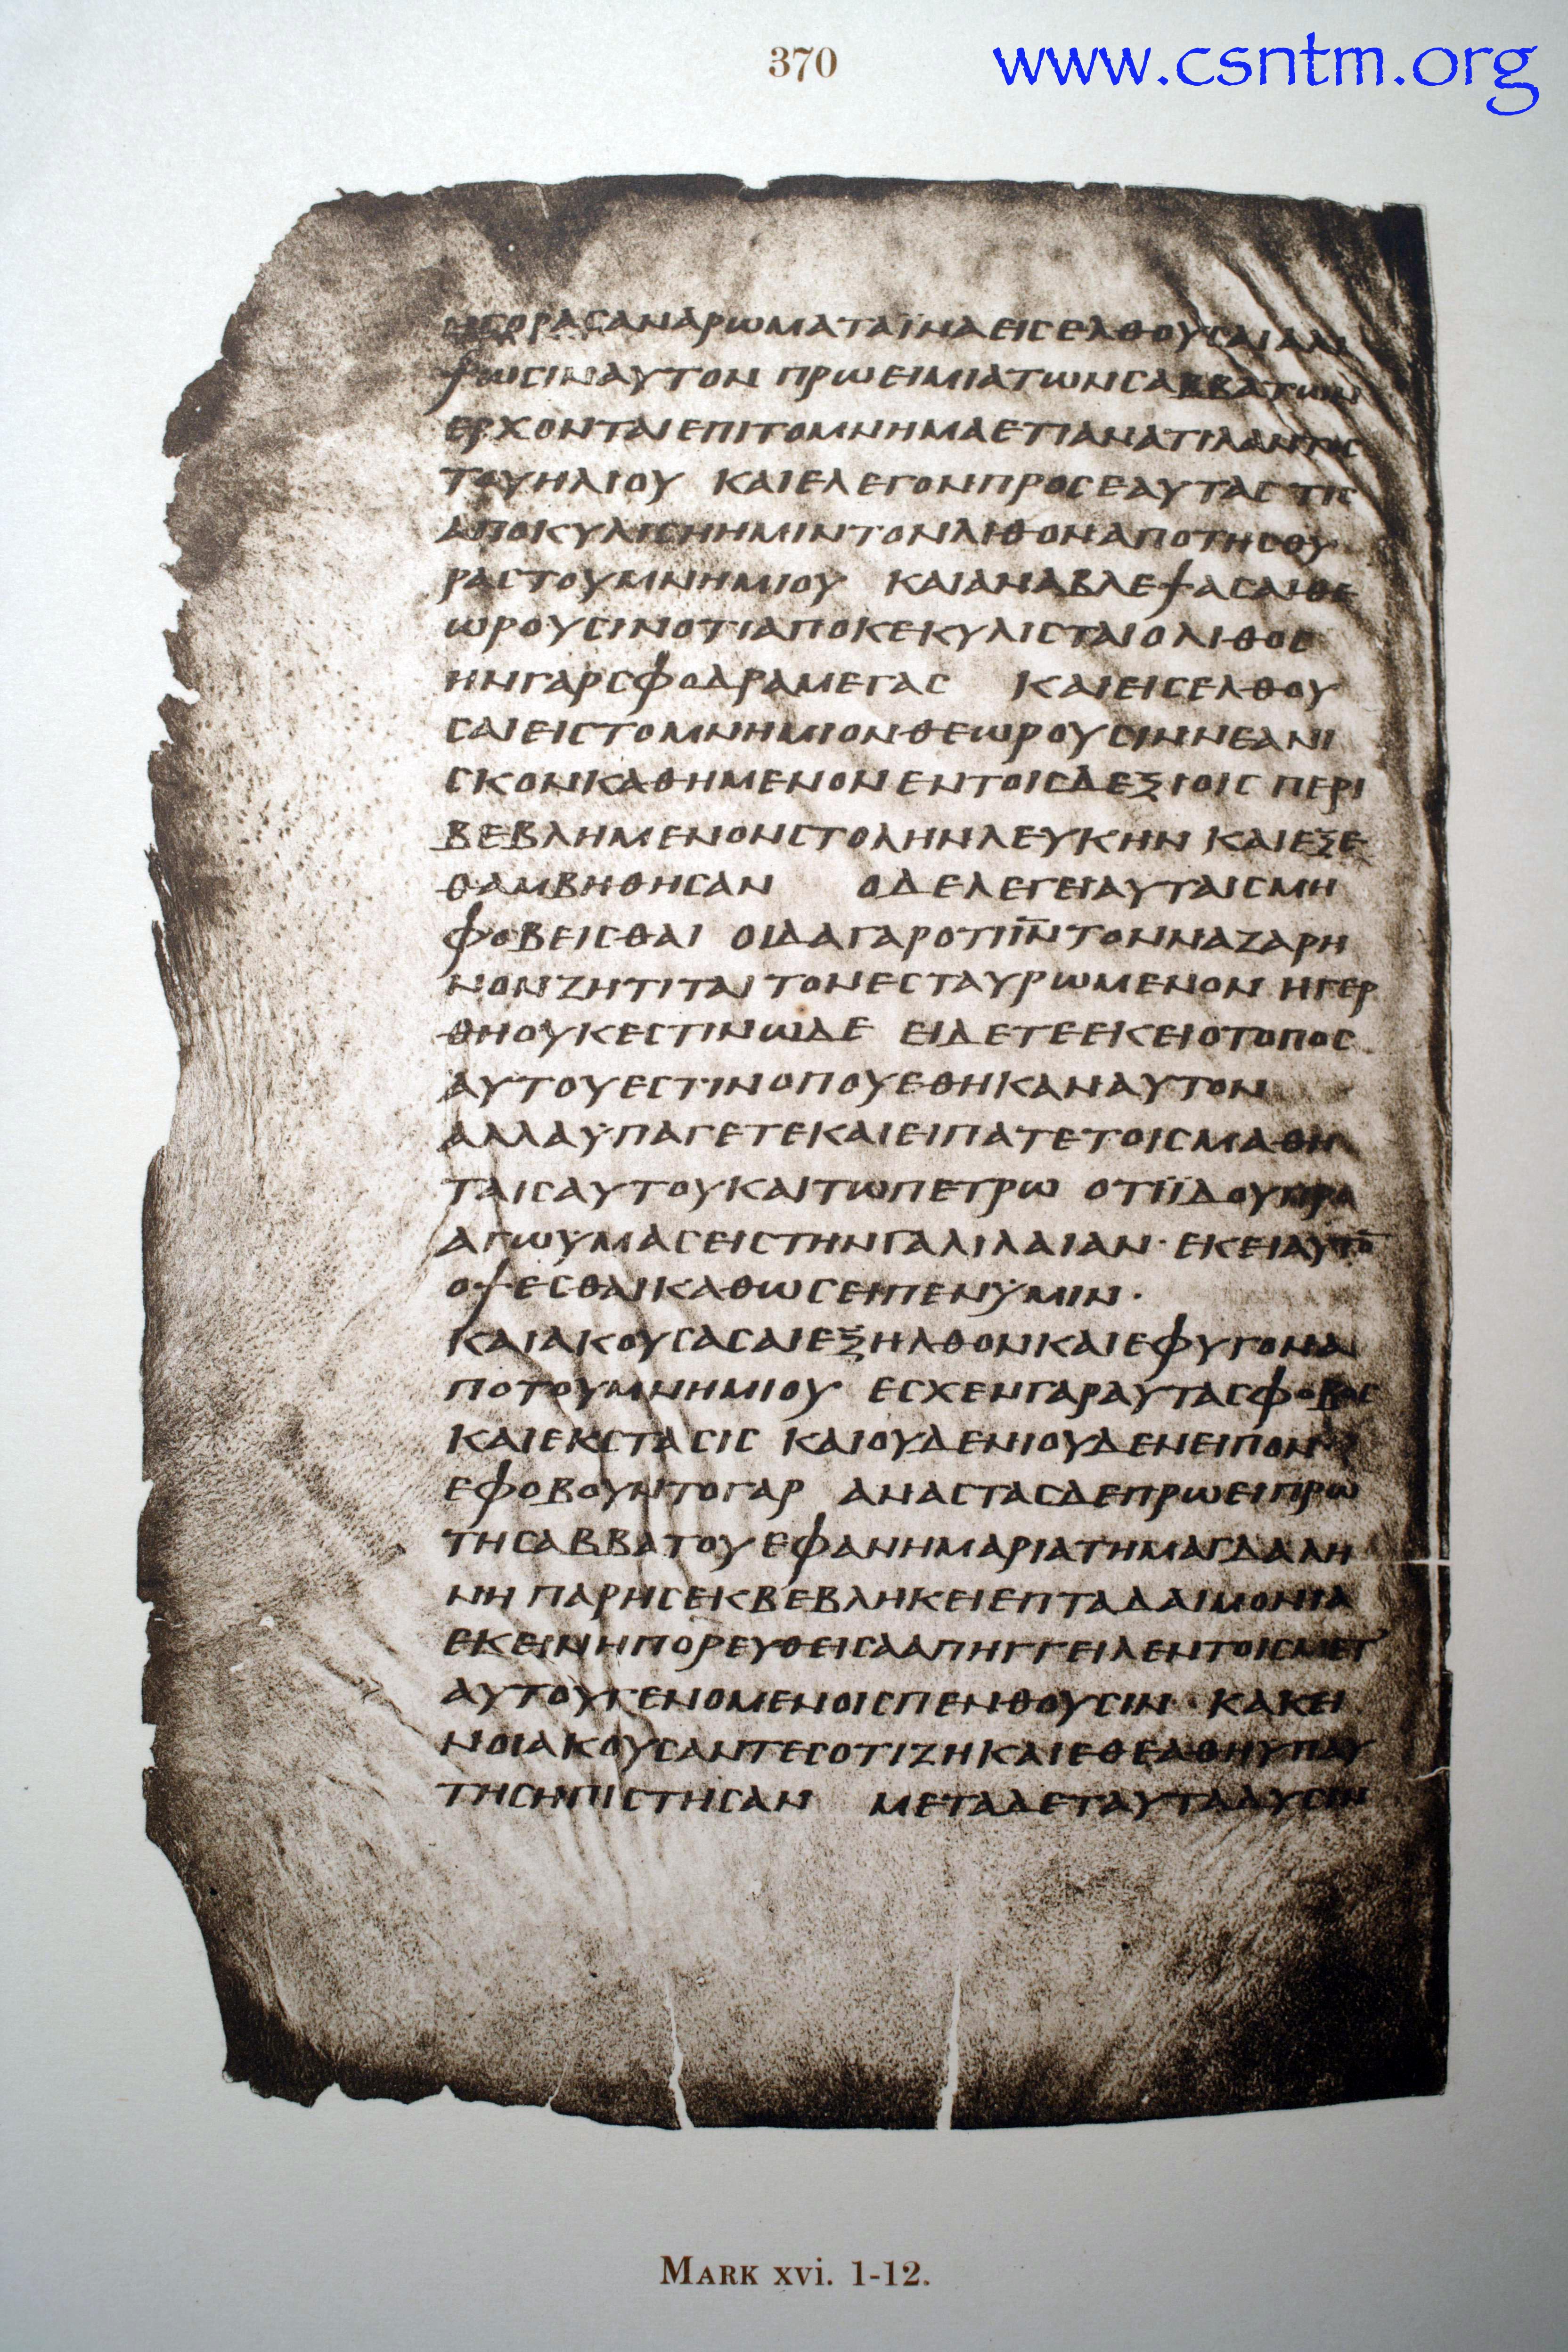 370
www.csntm.org
ΗΓΟΡΑCΑΝΑΡΩΜΑΤΑΪΝΑΕΙCΕΛΘΟΥCΑΙΑΛΙ
ΨΩCΙΝΑΥΤΟΝ ΠΡΩΕΙΜΙΑΤΩΝCΑΒΒΑΤΩΝ
ΕΡΧΟΝΤΑΙΕΠΙΤΟΜΝΗΜΑΕΤΙΑΝΑΤΙΛΑΝΤΟC
ΤΟΥΗΛΙΟΥ ΚΑΙΕΛΕΓΟΝΠΡΟCΕΑΥΤΑC ΤΙC
ΑΠΟΚΥΛΙCΗΗΜΙΝΤΟΝΛΙΘΟΝΑΠΟΤΗCΘΥ
ΡΑCΤΟΥΜΝΗΜΙΟΥ ΚΑΙΑΝΑΒΛΕΨΑCΑΙΘΕ
ΩΡΟΥCΙΝΟΤΙΑΠΟΚΕΚΥΛΙCΤΑΙΟΛΙΘΟC
ΗΝΓΑΡCΦΟΔΡΑΜΕΓΑC ΚΑΙΕΙCΕΛΘΟΥ
CΑΙΕΙCΤΟΜΝΗΜΙΟΝΘΕΩΡΟΥCΙΝΝΕΑΝΙ
CΚΟΝΚΑΘΗΜΕΝΟΝΕΝΤΟΙCΔΕΞΙΟΙC ΠΕΡΙ
ΒΕΒΛΗΜΕΝΟΝCΤΟΛΗΝΛΕΥΚΗΝ ΚΑΙΕΞΕ
ΘΑΜΒΗΘΗCΑΝ ΟΔΕΛΕΓΕΙΑΥΤΑΙCΜΗ
ΦΟΒΕΙCΘΑΙ ΟΙΔΑΓΑΡΟΤΙΙ̅Ν̅ΤΟΝΝΑΖΑΡΗ
ΝΟΝΖΗΤΙΤΑΙΤΟΝΕCΤΑΥΡΩΜΕΝΟΝ ΗΓΕΡ
ΘΗΟΥΚΕCΤΙΝΩΔΕ ΕΙΔΕΤΕΕΚΕΙΟΤΟΠΟC
ΑΥΤΟΥΕCΤΙΝΟΠΟΥΕΘΗΚΑΝΑΥΤΟΝ
ΑΛΛΑΫΠΑΓΕΤΕΚΑΙΕΙΠΑΤΕΤΟΙCΜΑΘΗ
ΤΑΙCΑΥΤΟΥΚΑΙΤΩΠΕΤΡΩ ΟΤΙΪΔΟΥΠΡΟ
ΑΓΩΫΜΑCΕΙCΤΗΝΓΑΛΙΛΑΙΑΝ· ΕΚΕΙΑΥΤΟ̅
ΟΨΕCΘΑΙΚΑΘΩCΕΙΠΕΝΫΜΙΝ·
ΚΑΙΑΚΟΥCΑCΑΙΕΞΗΛΘΟΝΚΑΙΕΦΥΓΟΝΑ
ΠΟΤΟΥΜΝΗΜΙΟΥ ΕCΧΕΝΓΑΡΑΥΤΑCΦΟΒΟC
ΚΑΙΕΚCΤΑCΙC ΚΑΙΟΥΔΕΝΙΟΥΔΕΝΕΙΠΟΝ
ΕΦΟΒΟΥΝΤΟΓΑΡ ΑΝΑCΤΑCΔΕΠΡΩΕΙΠΡΩ
ΤΗCΑΒΒΑΤΟΥΕΦΑΝΗΜΑΡΙΑΤΗΜΑΓΔΑΛΗ
ΝΗ ΠΑΡΗCΕΚΒΕΒΛΗΚΕΙΕΠΤΑΔΑΙΜΟΝΙΑ
ΕΚΕΙΝΗΠΟΡΕΥΘΕΙCΑΑΠΗΓΓΕΙΛΕΝΤΟΙCΜΕΤ
ΑΥΤΟΥΓΕΝΟΜΕΝΟΙCΠΕΝΘΟΥCΙΝ· ΚΑΚΕΙ
ΝΟΙΑΚΟΥCΑΝΤΕCΟΤΙΖΗΚΑΙΕΘΕΑΘΗΥΠΑΥ
ΤΗCΗΠΙCΤΗCΑΝ ΜΕΤΑΔΕΤΑΥΤΑΔΥCΙΝ
MARK XVI. 1-12.